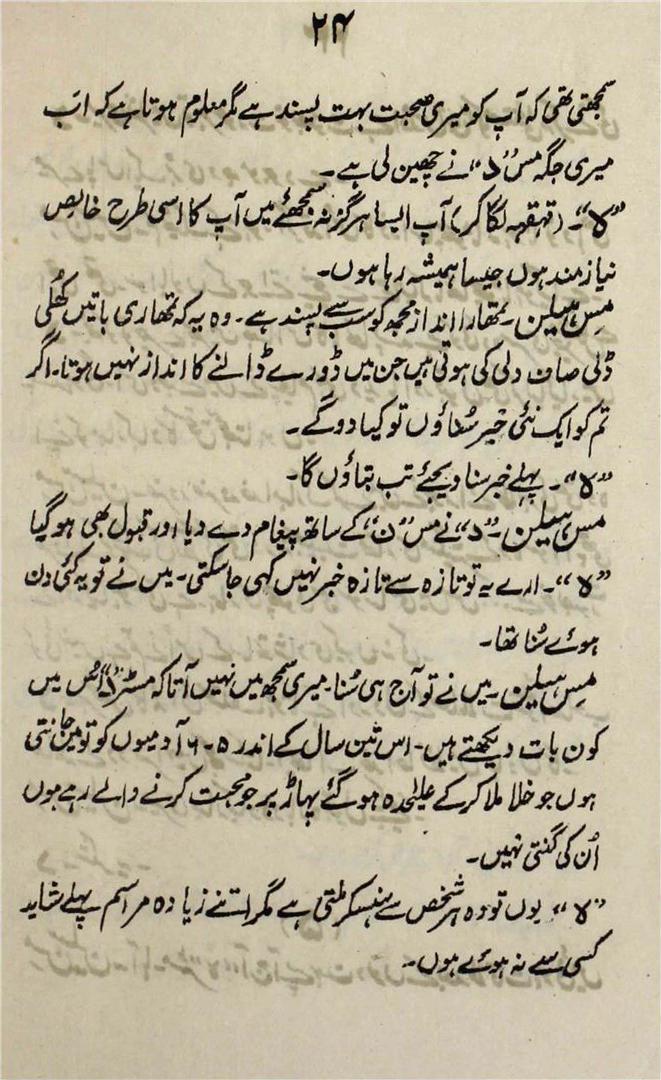 ۲۴
سمجھتی تھی کہ آپ کو میری صحبت بہت پسند ہے مگر معلوم ہوتا ہے کہ اب
میری جگہ مس "د" نے چھین لی ہے۔
"لا"۔ (قہقہہ لگا کر) آپ ایسا ہرگز نہ سمجھئے میں آپ کا اسی طرح خالص
نیازمند ہوں جیسا ہمیشہ رہا ہوں۔
مس ہیلن۔ تمھارا انداز مجھ کو سب سے پسند ہے۔ وہ یہ کہ تمھاری باتیں کھلی
ڈلی صاف دلی کی ہوتی ہیں جن میں ڈورے ڈالنے کا انداز نہیں ہوتا۔ اگر
تم کو ایک نئی خبر سناؤں تو کیا دو گے۔
"لا"۔ پہلے خبر سنا دیجئے تب بتاؤں گا۔
مس ہیلن۔ "د" نے مس "ن" کے ساتھ پیغام دے دیا اور قبول بھی ہو گیا
"لا"۔ ارے یہ تو تازہ سے تازہ خبر نہیں کہی جا سکتی۔ میں نے تو یہ کئی دن
ہوئے سُنا تھا۔
مس ہیلن۔ میں نے تو آج ہی سُنا۔ میری سمجھ میں نہیں آتا کہ مسٹر "د" اُس میں
کون بات دیکھتے ہیں۔ اس تین سال کے اندر ۵۔۶ آدمیوں کو تو میں جانتی
ہوں جو خلا ملا کر کے علیحدہ ہو گئے پہاڑ پر جو محبت کرنے والے رہے ہوں
اُن کی گنتی نہیں۔
"لا" یوں تو وہ ہر شخص سے ہنسکر ملتی ہے مگر اتنے زیادہ مراسم پہلے شاید
کسی سے نہ ہوئے ہوں۔